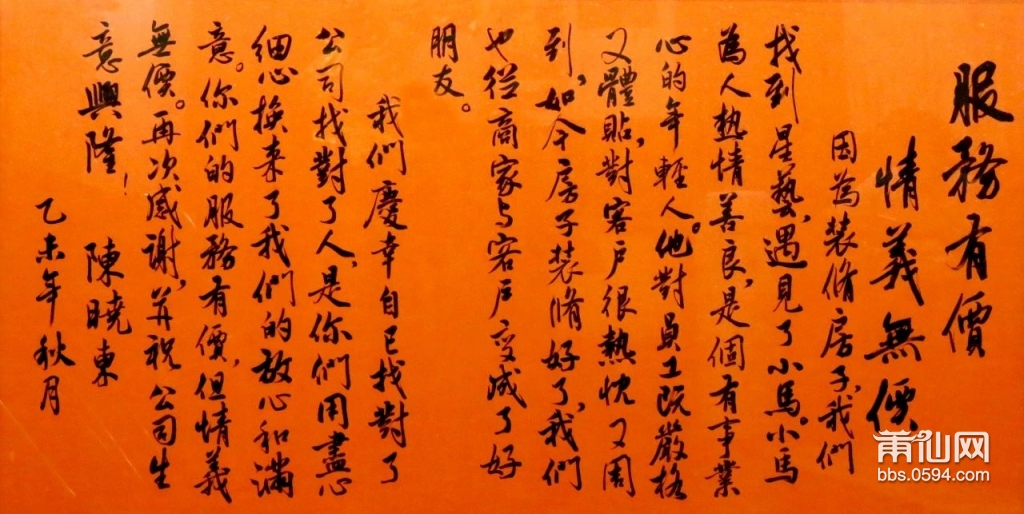 服務有價
情義無價
因為裝修房子,我們
找到星藝,遇見了小馬。小馬
為人熱情善良,是個有事業
心的年輕人。他對員工既嚴格
又體貼,對客戶很熱忱又周
到,如今房子裝修好了,我們
也從商家与客戶变成了好
朋友。
我們慶幸自已找對了
公司找對了人,是你們用盡心
细心换来了我們的放心和滿
意。你們的服務有價,但情義
無價。再次感谢,并祝公司生
意興隆!
陳曉東
乙未年秋月
莆仙网
bbs.0594.com